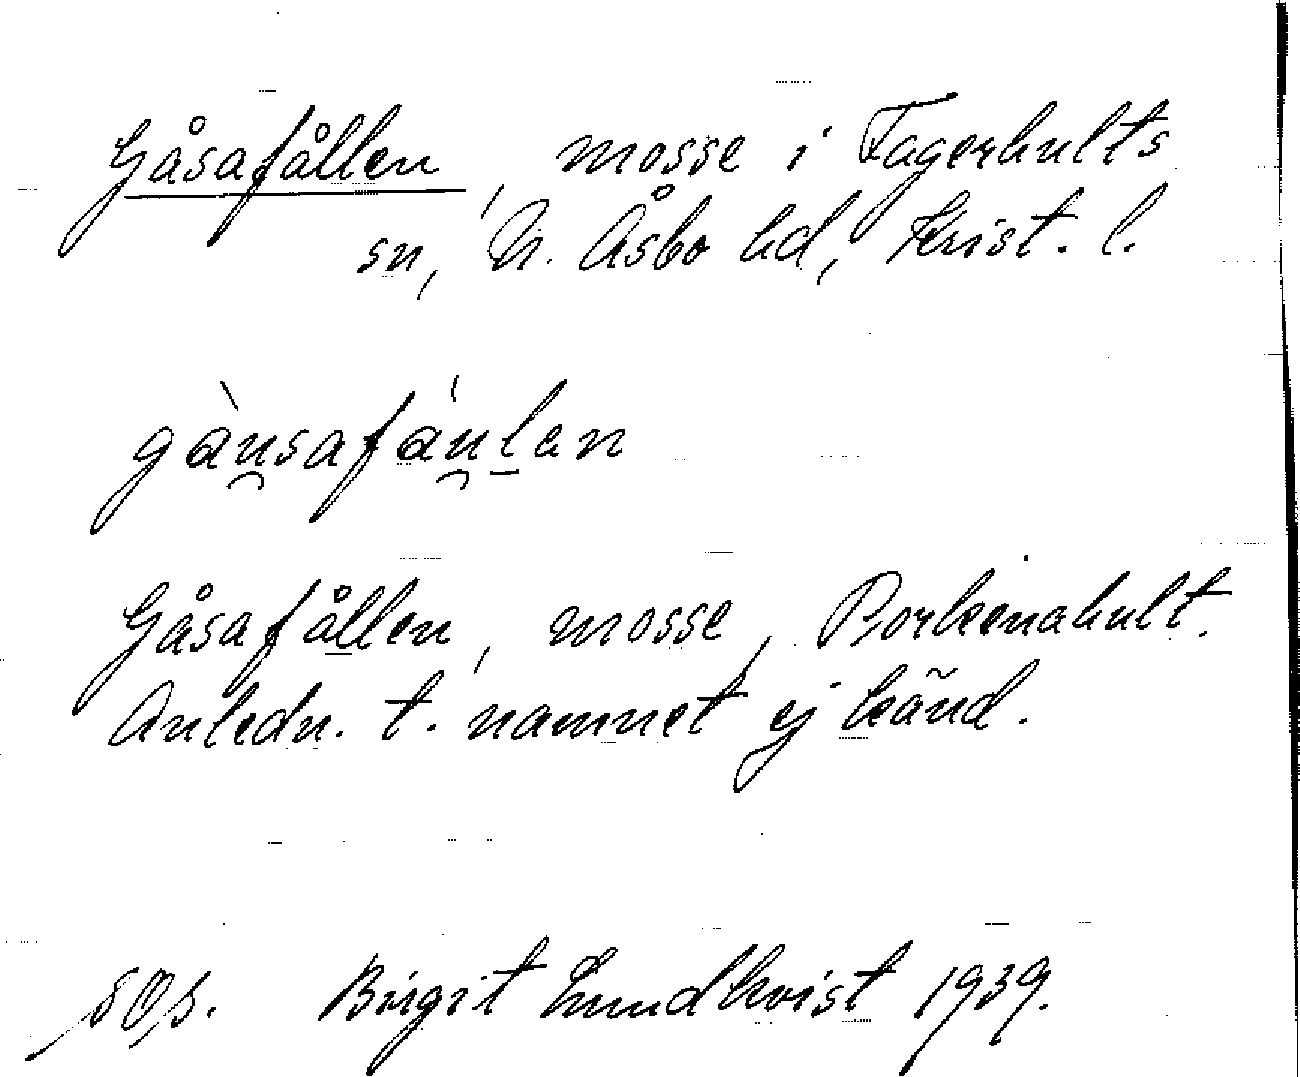 Gåsafållen, mosse i Fagerhults
sn, N. Åsbo hd, Krist. l.
gàu̯safáu̯l̠en
Gåsafållen, mosse, Porkenahult.
Anledn. t. namnet ej känd.
Birgit Lundkvist 1939.